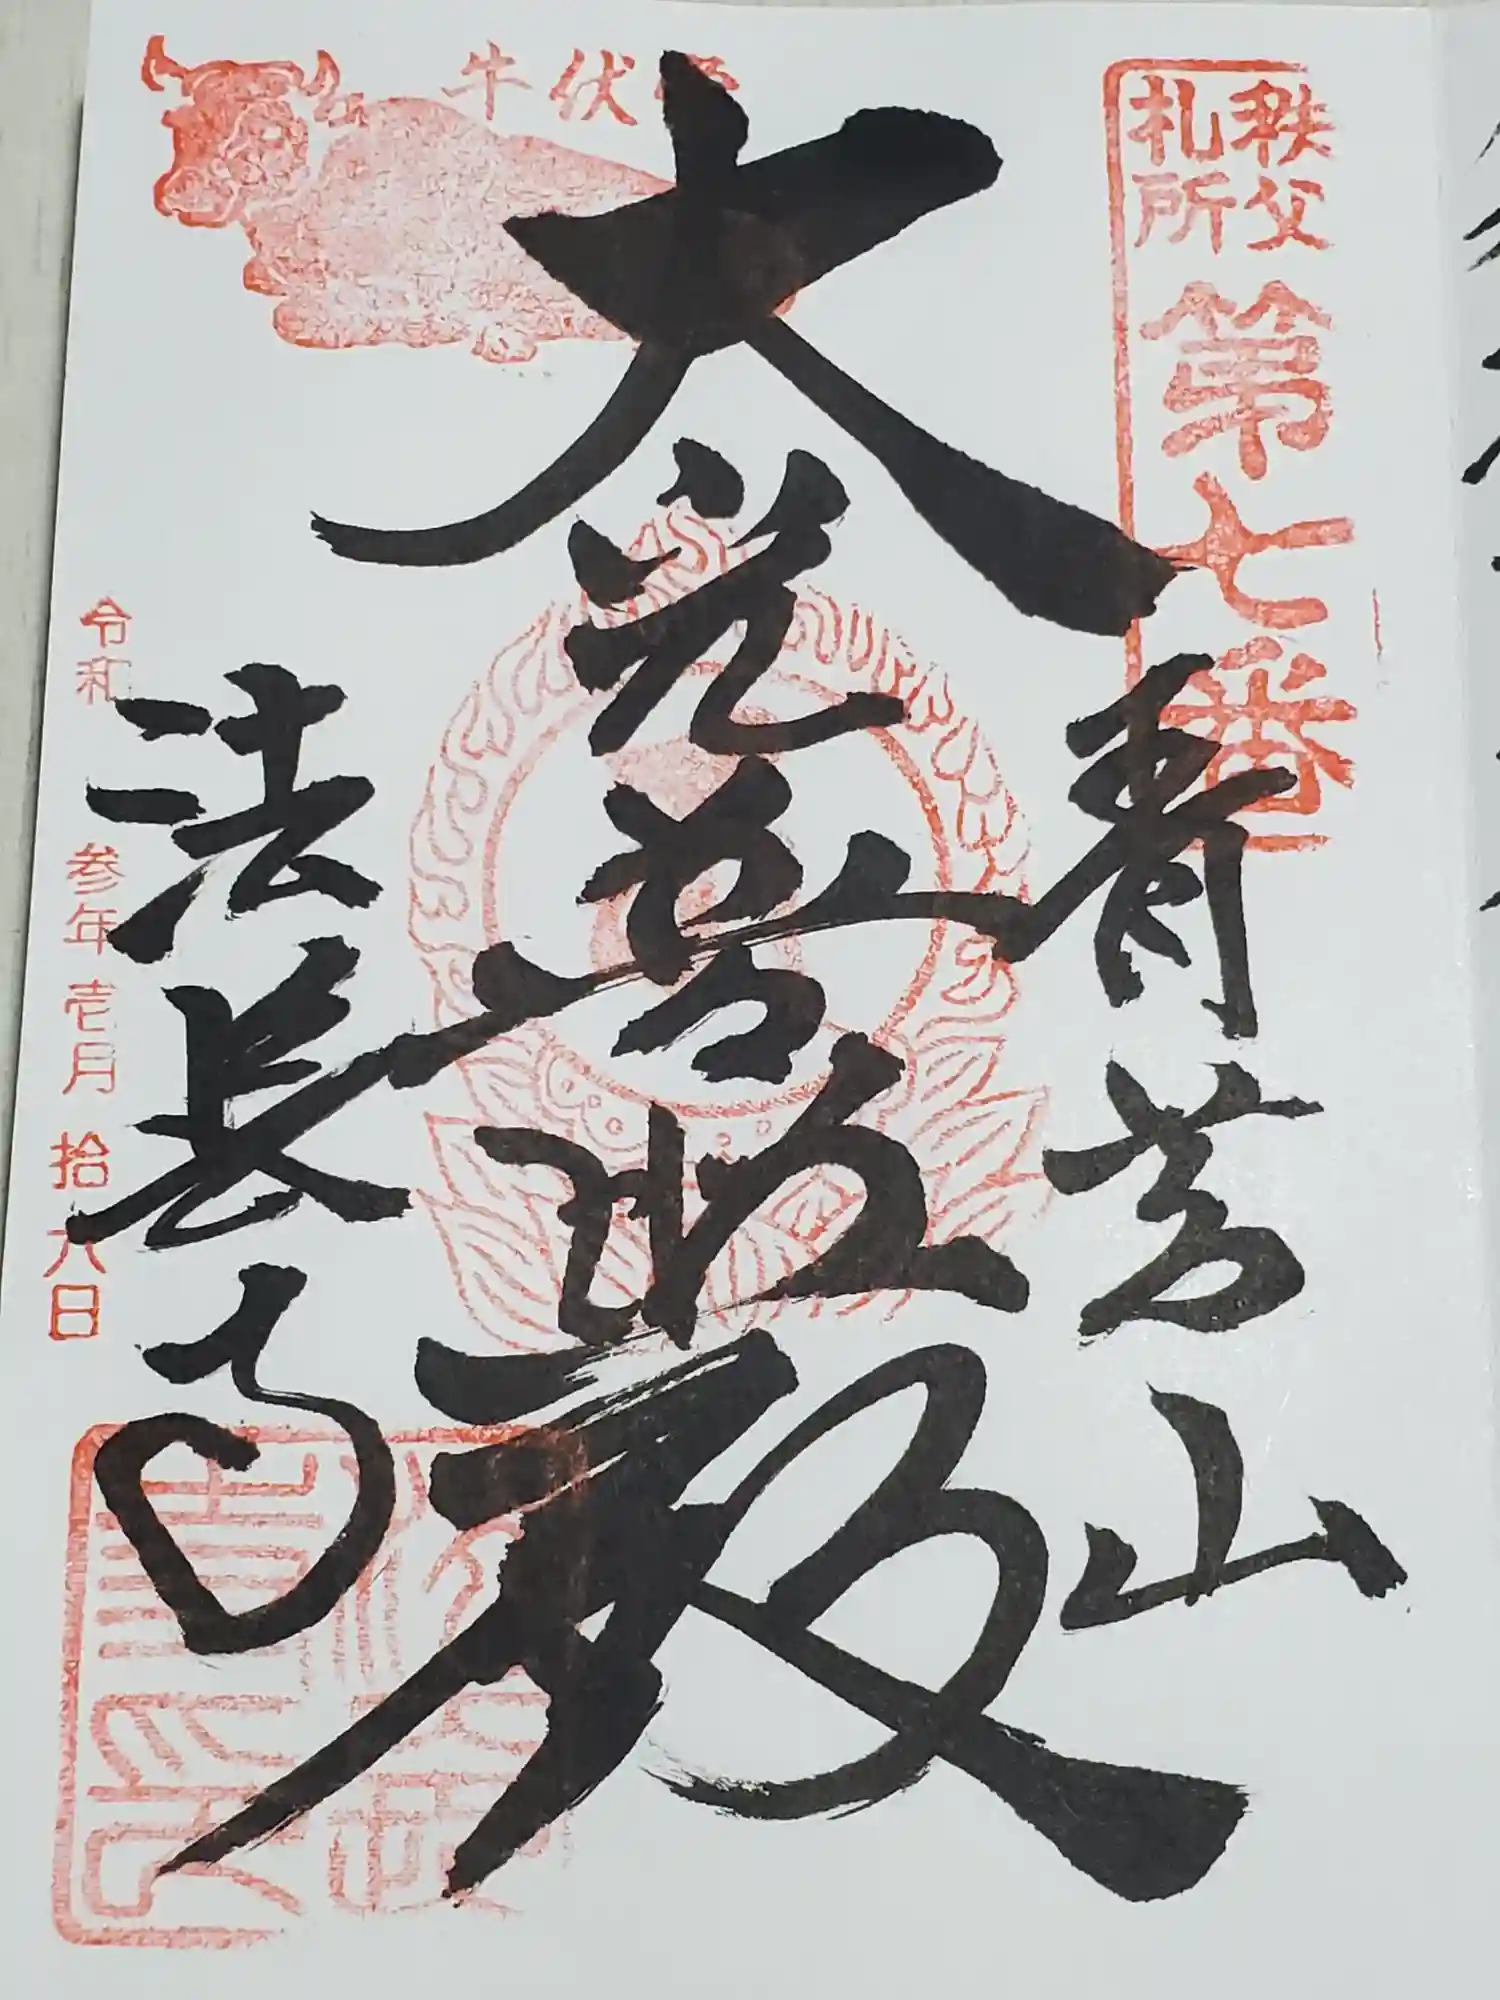 秩父
札所
第七番
青苔山
牛伏堂
大光普照殿
法長寺
令和 参年 壱月 拾六日